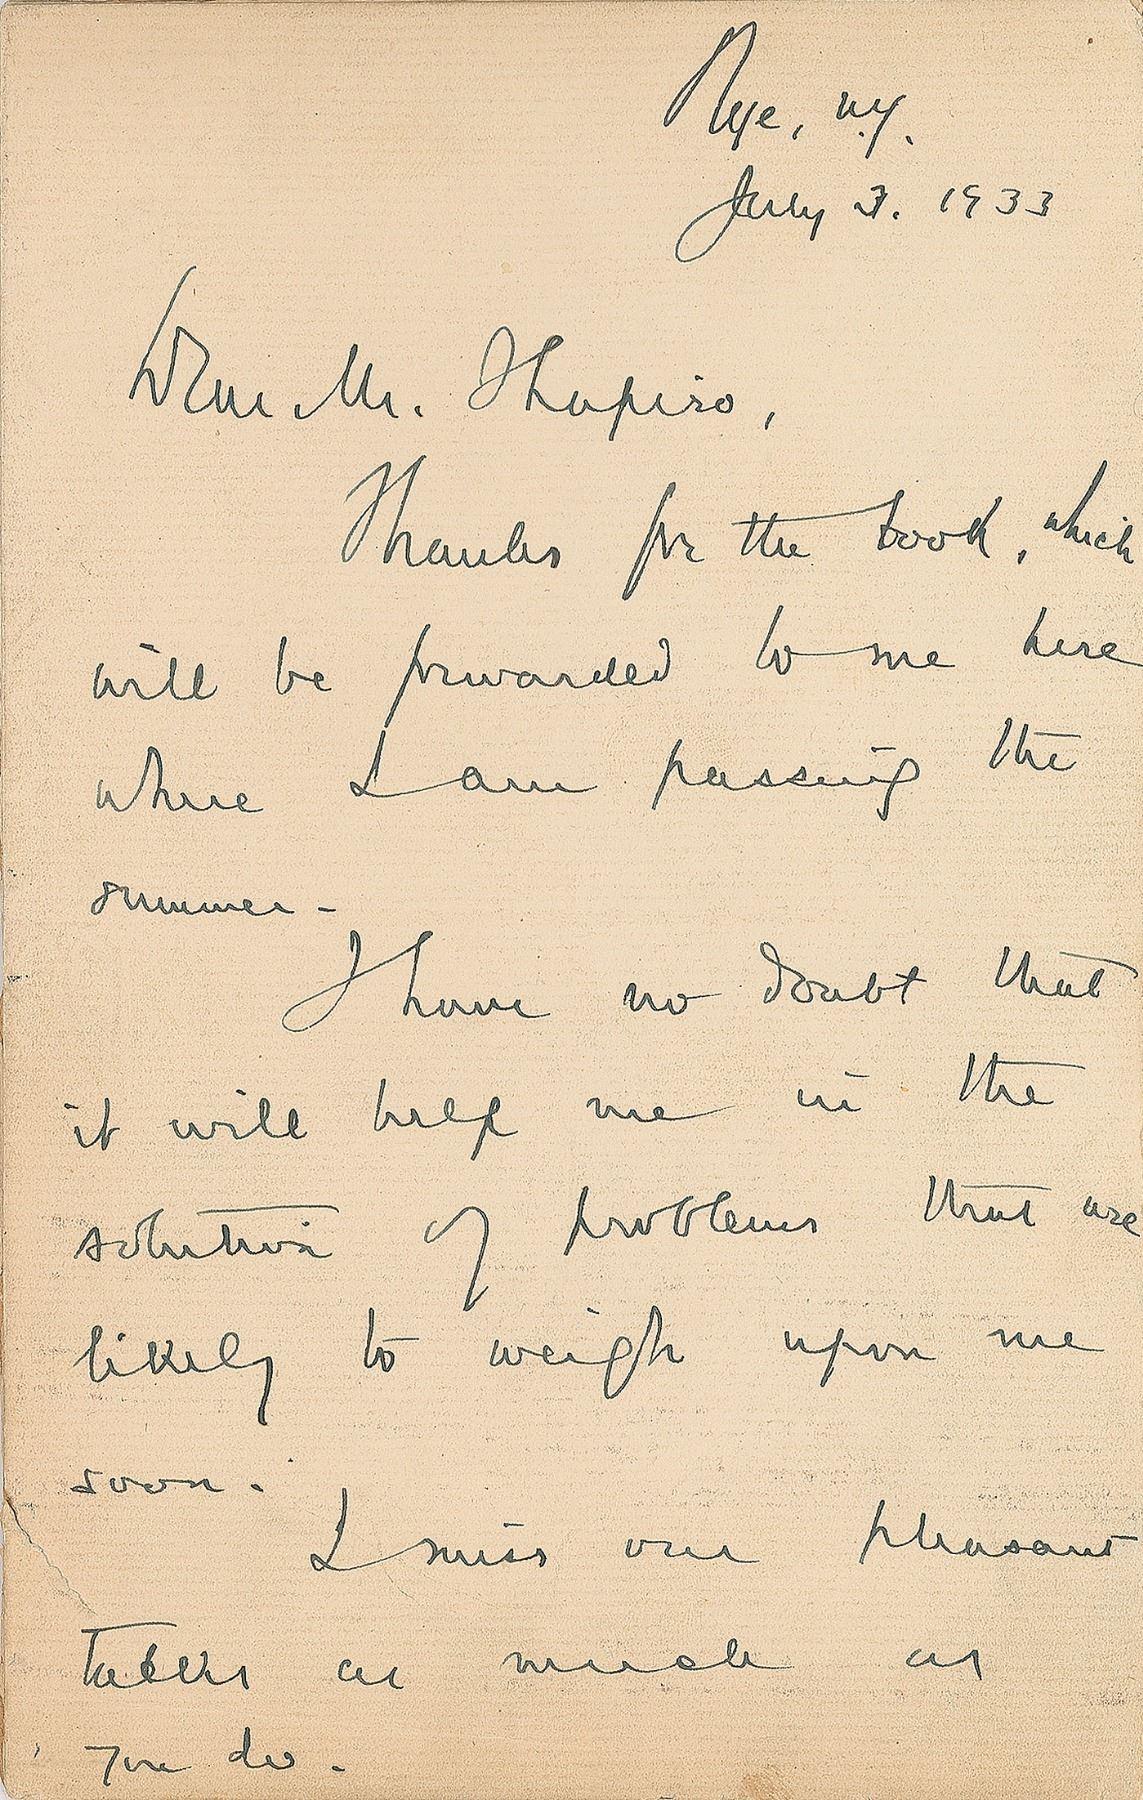 Rye, N.Y.
July 3. 1933
Dear Mr. Shapiro,
Thanks for the book, which
will be forwarded to me here
where I am passing the
summer -
I have no doubt that
it will help me in the
solution of problems that are
likely to weigh upon me
soon.
I miss our pleasant
talks as much as
you do.